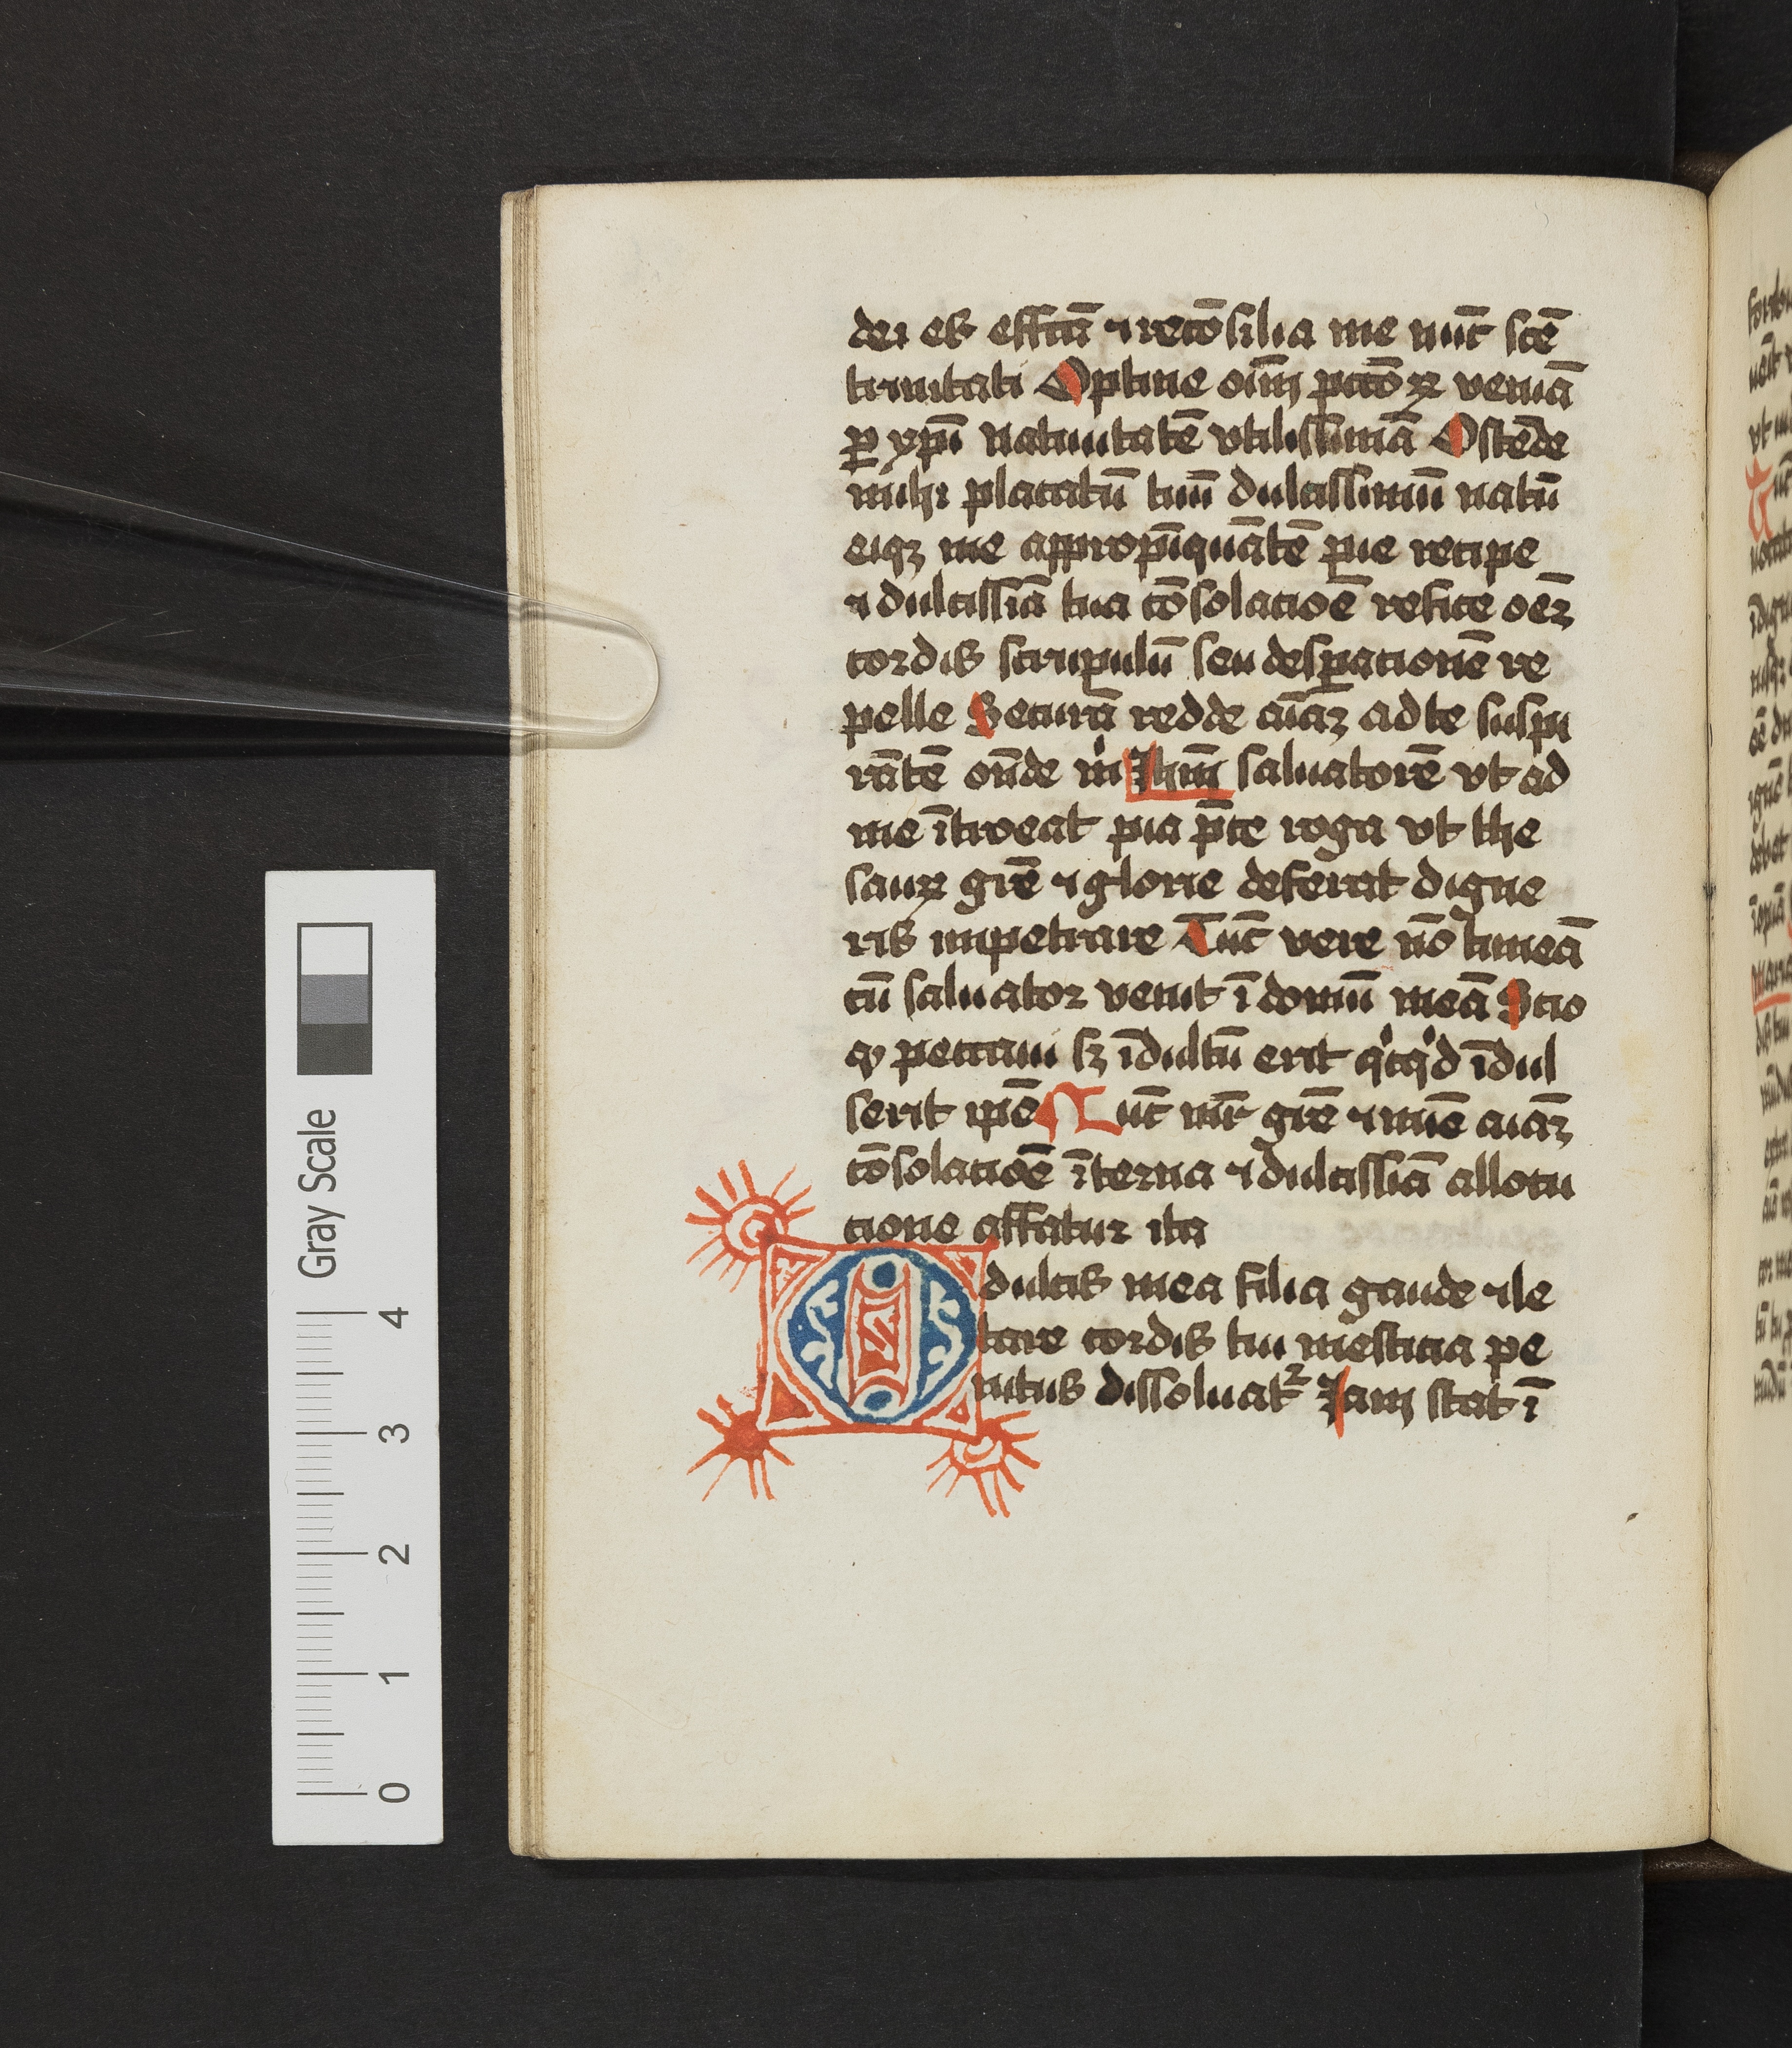 dei es effcā ⁊ recōsilia me nūc scē
trinitati Optine oīm pctōꝝ veniā
ꝑ xp̄i natiuitatē vtilissimā Ostēde
michi placatū tuū dulcissimū natū
eiqꝫ me appropīquātē pie recipe
⁊ dulcissīa tua cōsolacōe refice oēꝫ
cordis scrupulū seu desꝑacionē re
pelle Securā redde aīaꝫ ad te suspi
rātē oñde mͥ Ihm̄ saluatorē vt ad
me ītroeat pia p̄ce roga vt the
sauꝝ grē ⁊ glorie deferat digne
ris impetrare Tūc vere nō timeā
cū saluator venit ī domū meā Scio
ꝙ peccaui sꝫ īdultū erit qͥcqͥd īdul
serit ip̄e Nūc mr̄ grē ⁊ mīe aīaꝫ
cōsolacōe īterna ⁊ dulcissīa allocu
cione affatur ita
O dulcis mea filia gaude ⁊ le
tare cordis tui mesticia pe
nitus dissoluatᷣ Iam stat ī
Gray Scale
0 1 2 3 4